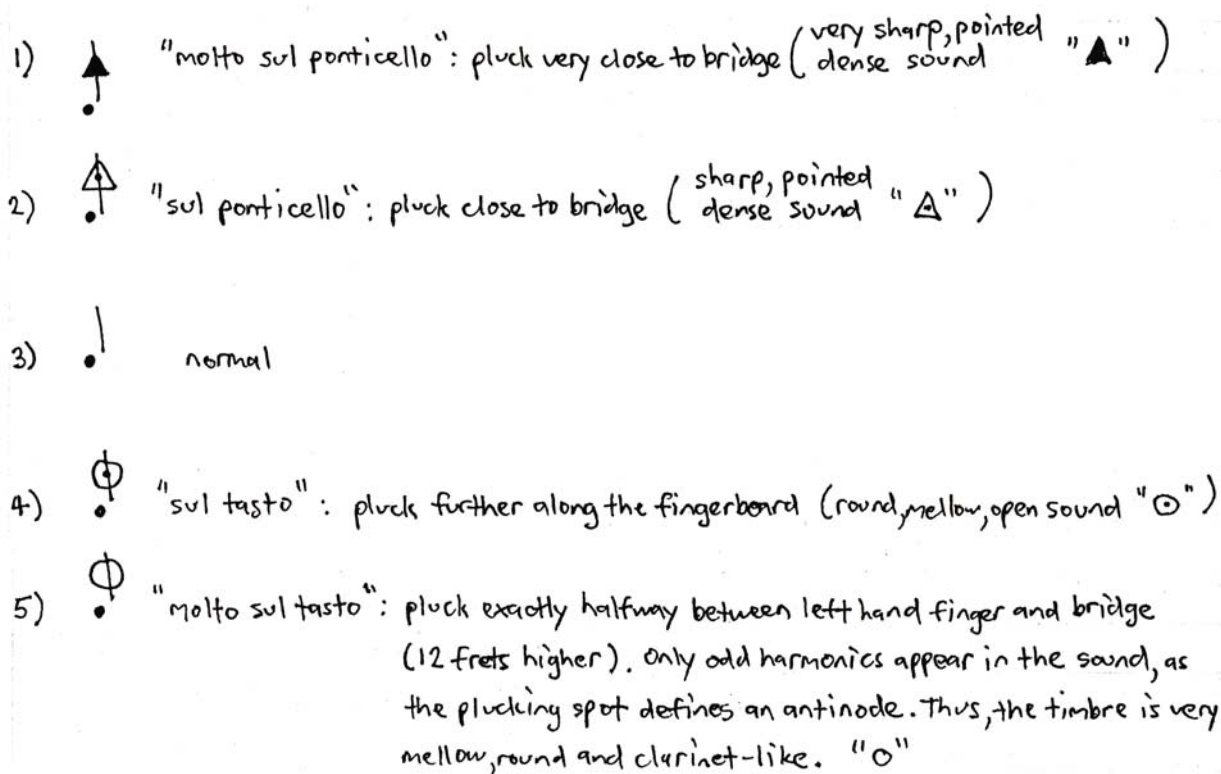 1) "molto sul ponticello": pluck very close to bridge (very sharp, pointed dense sound "▲")
2) "sul ponticello": pluck close to bridge (sharp, pointed dense sound "◬")
3) normal
4) "sul tasto": pluck further along the fingerboard (round, mellow, open sound "⊙")
5) "molto sul tasto": pluck exactly halfway between left hand finger and bridge
(12 frets higher). Only odd harmonics appear in the sound, as
the plucking spot defines an antinode. Thus, the timbre is very
mellow, round and clarinet-like. "○"